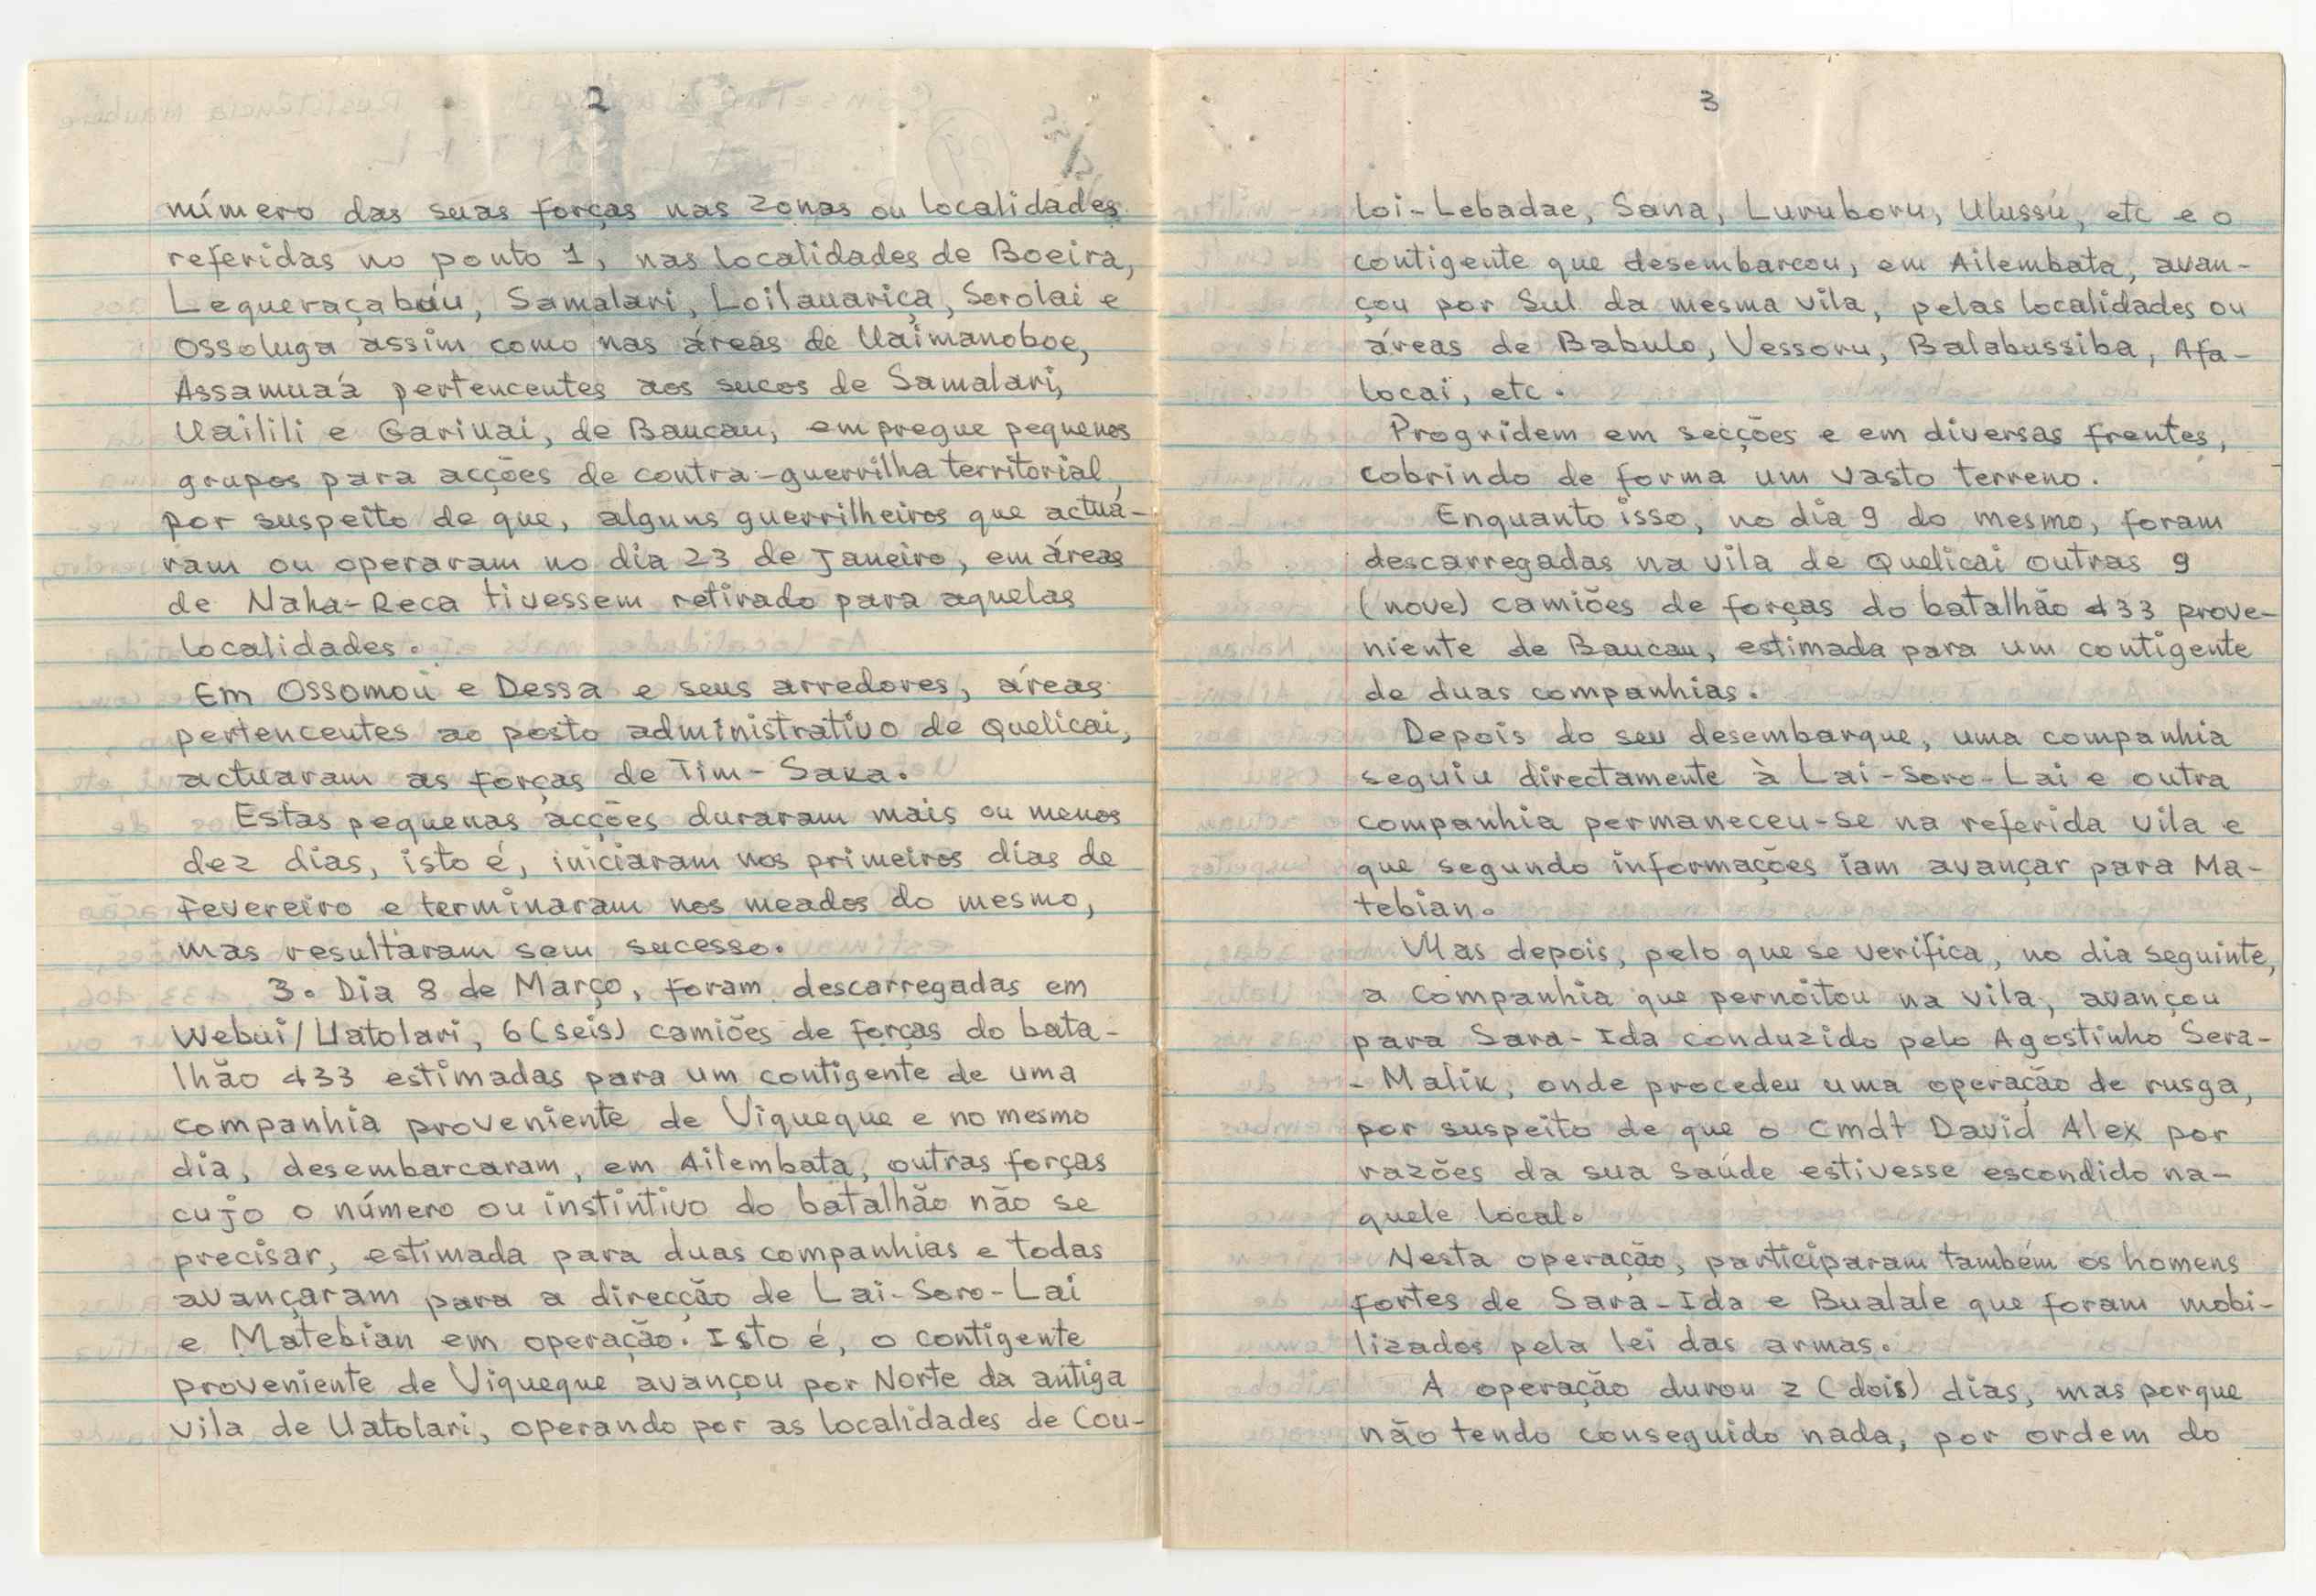 2
número das suas forças nas zonas ou localidades
referidas no ponto 1, nas localidades de Boeira,
Lequeraçabáu, Samalari, Loilauariça, Sorolai e
Ossoluga assim como nas áreas de Uaimanoboe,
Assamuaá pertencentes aos sucos de Samalari,
Uailili e Gariuai, de Baucau, empregue pequenos
grupos para acções de contra-guerrilha territorial,
por suspeito de que, alguns guerrilheiros que actuá-
ram ou operaram no dia 23 de Janeiro, em áreas
de Naha-Reca tivessem retirado para aquelas
localidades.
Em Ossomou e Dessa e seus arredores, áreas
pertencentes ao posto administrativo de Quelicai,
actuaram as forças de Tim-Saka.
Estas pequenas acções duraram mais ou menos
dez dias, isto é, iniciaram nos primeiros dias de
Fevereiro e terminaram nos meados do mesmo,
mas resultaram sem sucesso.
3. Dia 8 de Março, foram descarregadas em
Webui/Uatolari, 6 (seis) camiões de forças do bata-
lhão 433 estimadas para um contigente de uma
companhia proveniente de Viqueque e no mesmo
dia, desembarcaram, em Ailembata, outras forças
cujo o número ou instintivo do batalhão não se
precisar, estimada para duas companhias e todas
avançaram para a direcção de Lai-Soro-Lai
e Matebian em operação. Isto é, o contigente
proveniente de Viqueque avançou por Norte da antiga
vila de Uatolari, operando por as localidades de Cou-
3
loi-Lebadae, Sana, Luruboru, Ulussu, etc e o
contigente que desembarcou, em Ailembata, avan-
çou por Sul da mesma vila, pelas localidades ou
áreas de Babulo, Vessoru, Balabussiba, Afa-
locai, etc.
Progridem em secções e em diversas frentes,
cobrindo de forma um vasto terreno.
Enquanto isso, no dia 9 do mesmo, foram
descarregadas na vila de Quelicai outras 9
(nove) camiões de forças do batalhão 433 prove-
niente de Baucau, estimada para um contigente
de duas companhias.
Depois do seu desembarque, uma companhia
seguiu directamente à Lai-Soro-Lai e outra
companhia permaneceu-se na referida vila e
que segundo informações iam avançar para Ma-
tebian.
Mas depois, pelo que se verifica, no dia seguinte,
a companhia que pernoitou na vila, avançou
para Sara-Ida conduzido pelo Agostinho Sera-
- Malik, onde procedeu uma operação de rusga,
por suspeito de que o Cmdt David Alex por
razões da sua saúde estivesse escondido na-
quele local.
Nesta operação, participaram também os homens
fortes de Sara-Ida e Bualale que foram mobi-
lizados pela lei das armas.
A operação durou 2 (dois) dias, mas porque
não tendo conseguido nada, por ordem do